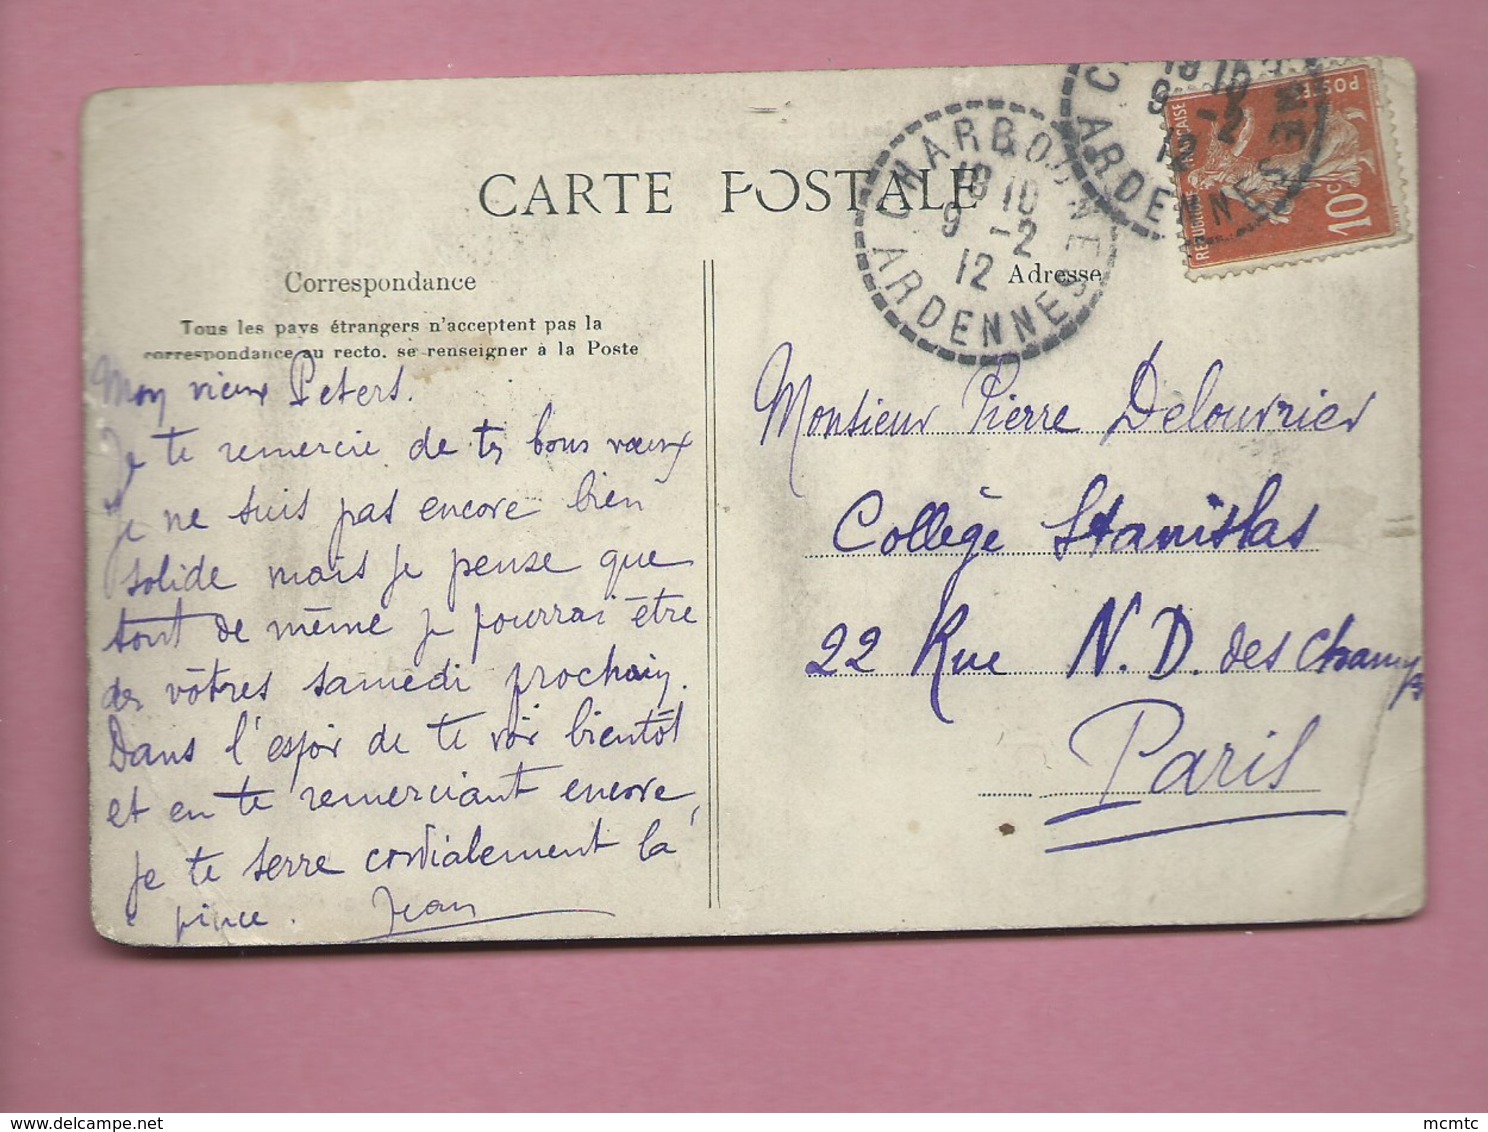 CARTE POSTALE
Correspondance
Tous les pays étrangers n'acceptent pas la
correspondance au recto. se renseigner à la Poste
Mon vieux Peters.
Je te remercie de tes bons vœux
je ne suis pas encore bien
solide mais je pense que
tout de même je pourrai être
des vôtres samedi prochain.
Dans l'espoir de te voir bientôt
et en te remerciant encore,
je te serre cordialement la
pince. Jean
CHARBOGNE
18 10
9 -2
12
ARDENNES
18 10
9 -2
12
ARDENNES
REPUBLIQUE FRANÇAISE
10c
POSTES
Adresse
Monsieur Pierre Delouvrier
Collège Stanislas
22 Rue N. D. des Champs
Paris
delcampe.net
mcmtc